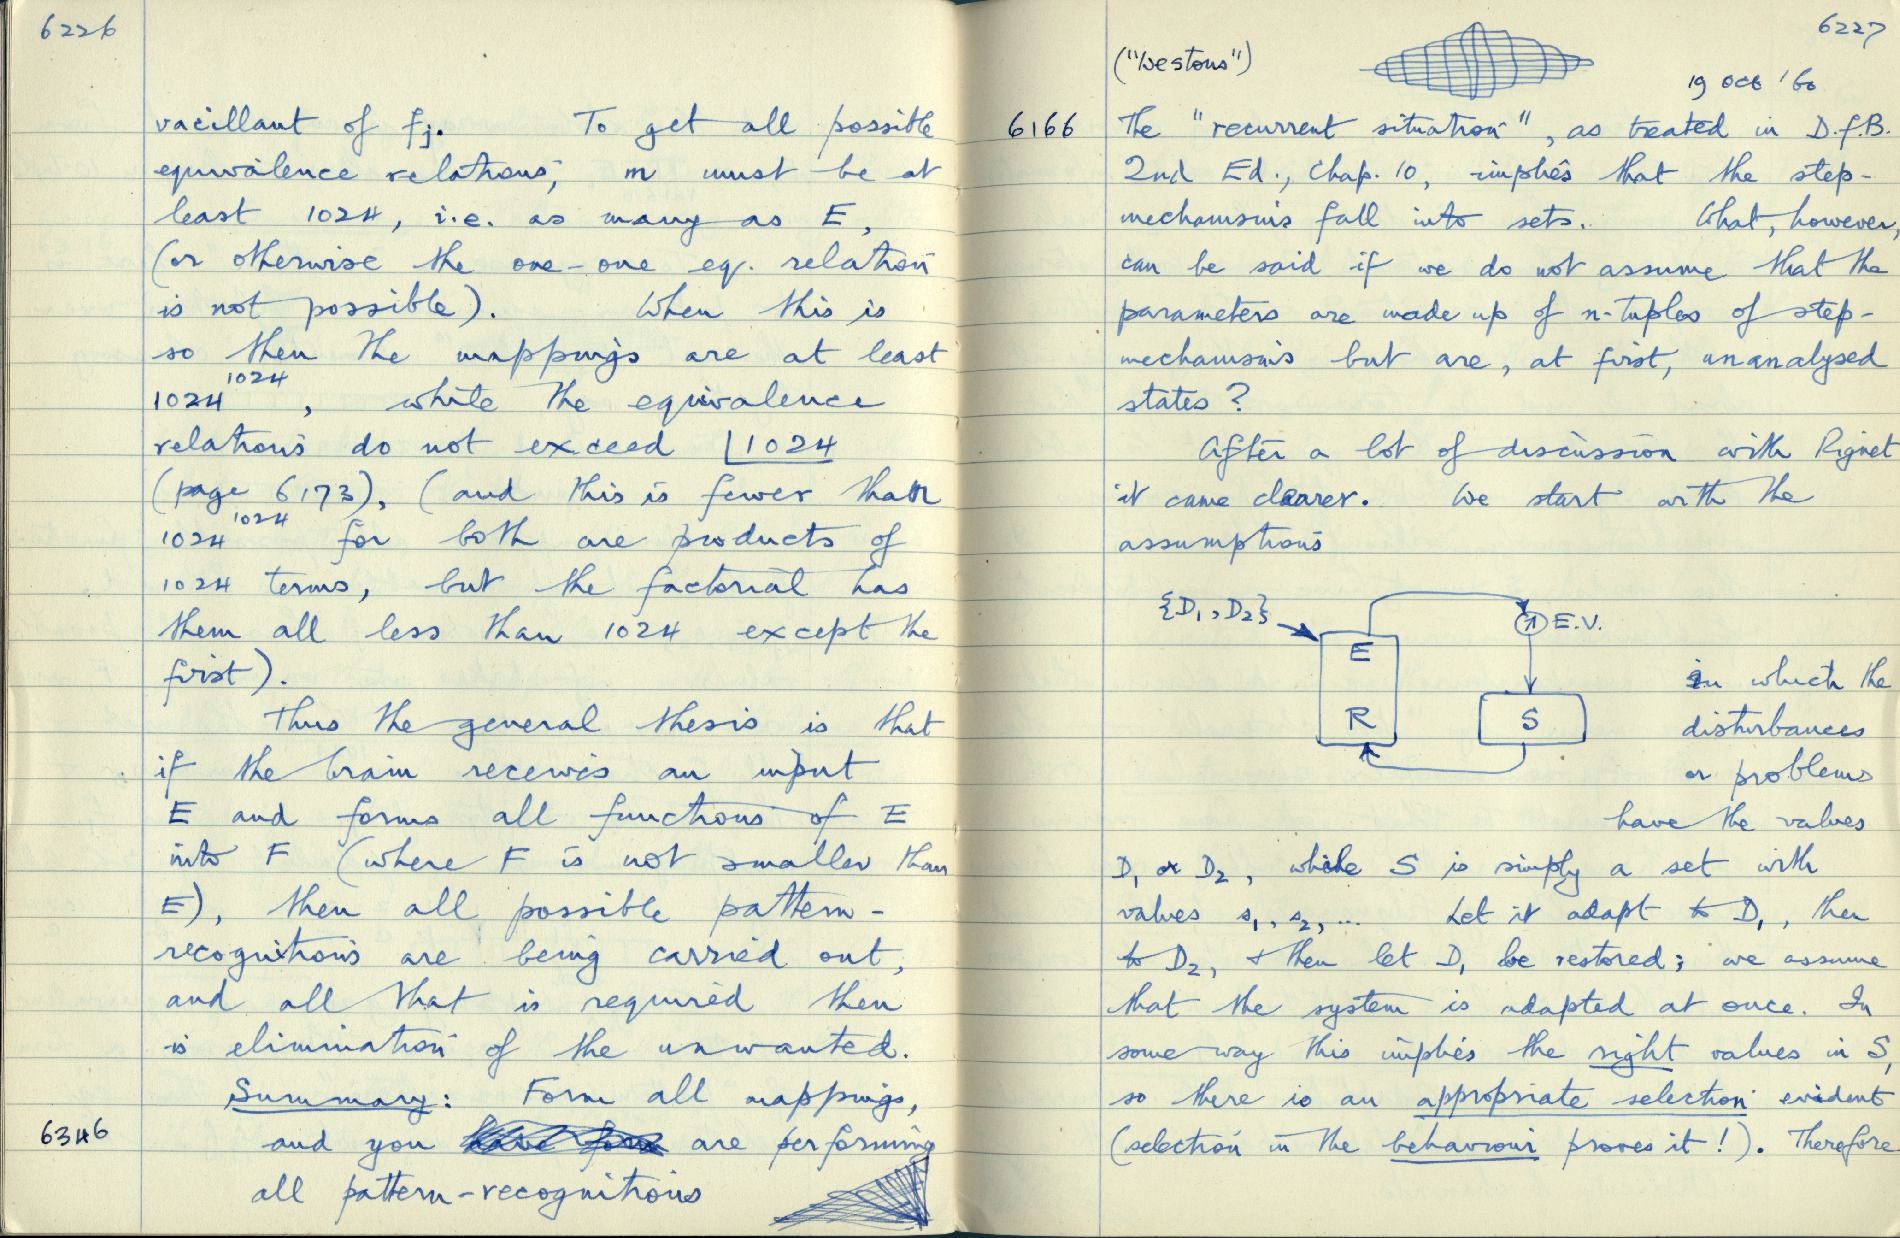 6226
vacillant of fj. To get all possible
equivalence relations, m must be at
least 1024, i.e. as many as E,
(or otherwise the one-one eq. relation
is not possible). When this is
so then the mappings are at least
1024^1024, while the equivalence
relations do not exceed |1024
(page 6173), (and this is fewer than
1024^1024 for both are products of
1024 terms, but the factorial has
them all less than 1024 except the
first).
Thus the general thesis is that
if the brain receives an input
E and forms all functions of E
into F (where F is not smaller than
E), then all possible pattern-
recognitions are being carried out,
and all that is required then
is elimination of the unwanted.
Summary: Form all mappings,
6346 and you are performing
all pattern-recognitions
6227
("Westons")
19 Oct '60
6166 The "recurrent situation", as treated in D.f.B.
2nd Ed., Chap. 10, implies that the step-
mechanisms fall into sets. What, however,
can be said if we do not assume that the
parameters are made up of n-tuples of step-
mechanisms but are, at first, unanalysed
states?
After a lot of discussion with Riguet
it came clearer. We start with the
assumptions
{D1, D2}
E.V.
E
R
S
in which the
disturbances
or problems
have the values
D1 or D2, while S is simply a set with
values s1, s2, ... Let it adapt to D1, then
to D2, & then let D1 be restored; we assume
that the system is adapted at once. In
some way this implies the right values in S,
so there is an appropriate selection evident
(selection in the behaviour proves it!). Therefore